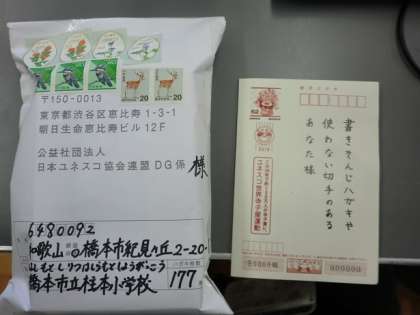 20
20
〒150-0013
東京都渋谷区恵比寿1-3-1
朝日生命恵比寿ビル12F
公益社団法人
日本ユネスコ協会連盟 DG係 様
6480092
和歌山 橋本市紀見ヶ丘2-20-
はしもとしりつはしらもとしょうがっこう
橋本市立柱本小学校
177
書きそんじハガキや
使わない切手のある
あなた様
ユネスコ世界寺子屋運動